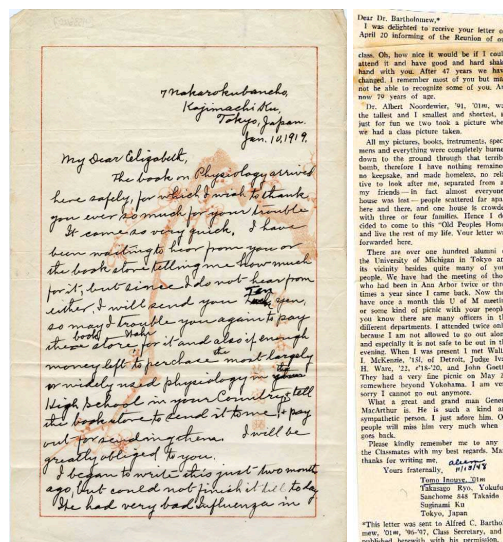 7 Nakarokubancho,
Kojimachi Ku,
Tokyo, Japan.
Jan. 10, 1919.
My Dear Elizabeth,
The book on Physiology arrived
here safely, for which I wish to thank
you ever so much for your trouble
It came so very quick, I have
been waiting to hear from you or
the book store telling me how much
for it, but since I do not hear from
either, I will send you Ten yen,
so may I trouble you again to pay
book
the store for it and also if enough
money left to purchase the most largely
or widely used physiology in the
High School in your Country & tell
the book store to send it to me & pay
out for sending them. I will be
greatly obliged to you.
I began to write this just two month
ago, but could not finish it till to day
She had very bad Influenza in
Dear Dr. Bartholomew,*
I was delighted to receive your letter of
April 20 informing of the Reunion of
class. Oh, how nice it would be if I could
attend it and have good and hard shake
hand with you. After 47 years we have
changed. I remember most of you but may
not be able to recognize some of you. As
now 79 years of age.
Dr. Albert Noordewier, '91, '01m, was
the tallest and I smallest and shortest, so
just for fun we two took a picture when
we had a class picture taken.
All my pictures, books, instruments, speci-
mens and everything were completely burned
down to the ground through that terrible
bomb, therefore I have nothing remained
no keepsake, and made homeless, no rela-
tive to look after me, separated from all
my friends — in fact almost everyone's
house was lost — people scattered far apart
here and there, and one house is crowded
with three or four families. Hence I de-
cided to come to this "Old Peoples Home"
and live the rest of my life. Your letter was
forwarded here.
There are over one hundred alumni of
the University of Michigan in Tokyo and
its vicinity besides quite many of young
people. We have had the meeting of those
who had been in Ann Arbor twice or three
times a year since I came back. Now they
have once a month this U of M meeting
or some kind of picnic with your people
you know there are many officers in the
different departments. I attended twice only
because I am not allowed to go out alone
and especially it is not safe to be out in the
evening. When I was present I met Walter
I. McKenzie, '15l, of Detroit, Judge
H. Ware, '22, e'18-'20, and John Goetz
They had a very fine picnic on May
somewhere beyond Yokohama. I am very
sorry I cannot go out anymore.
What a great and grand man General
MacArthur is. He is such a kind and
sympathetic person. I just adore him. Our
people will miss him very much when he
goes back.
Please kindly remember me to any of
the Classmates with my best regards. Many
thanks for writing me.
Yours fraternally,
Tomo Inouye, '01m
Takasago Ryo, Yokufu
Sanchome 848 Takaido
Suginami Ku
Tokyo, Japan
*This letter was sent to Alfred C. Bartholo-
mew, '01m, '96-'97, Class Secretary, and
published herewith with his permission.